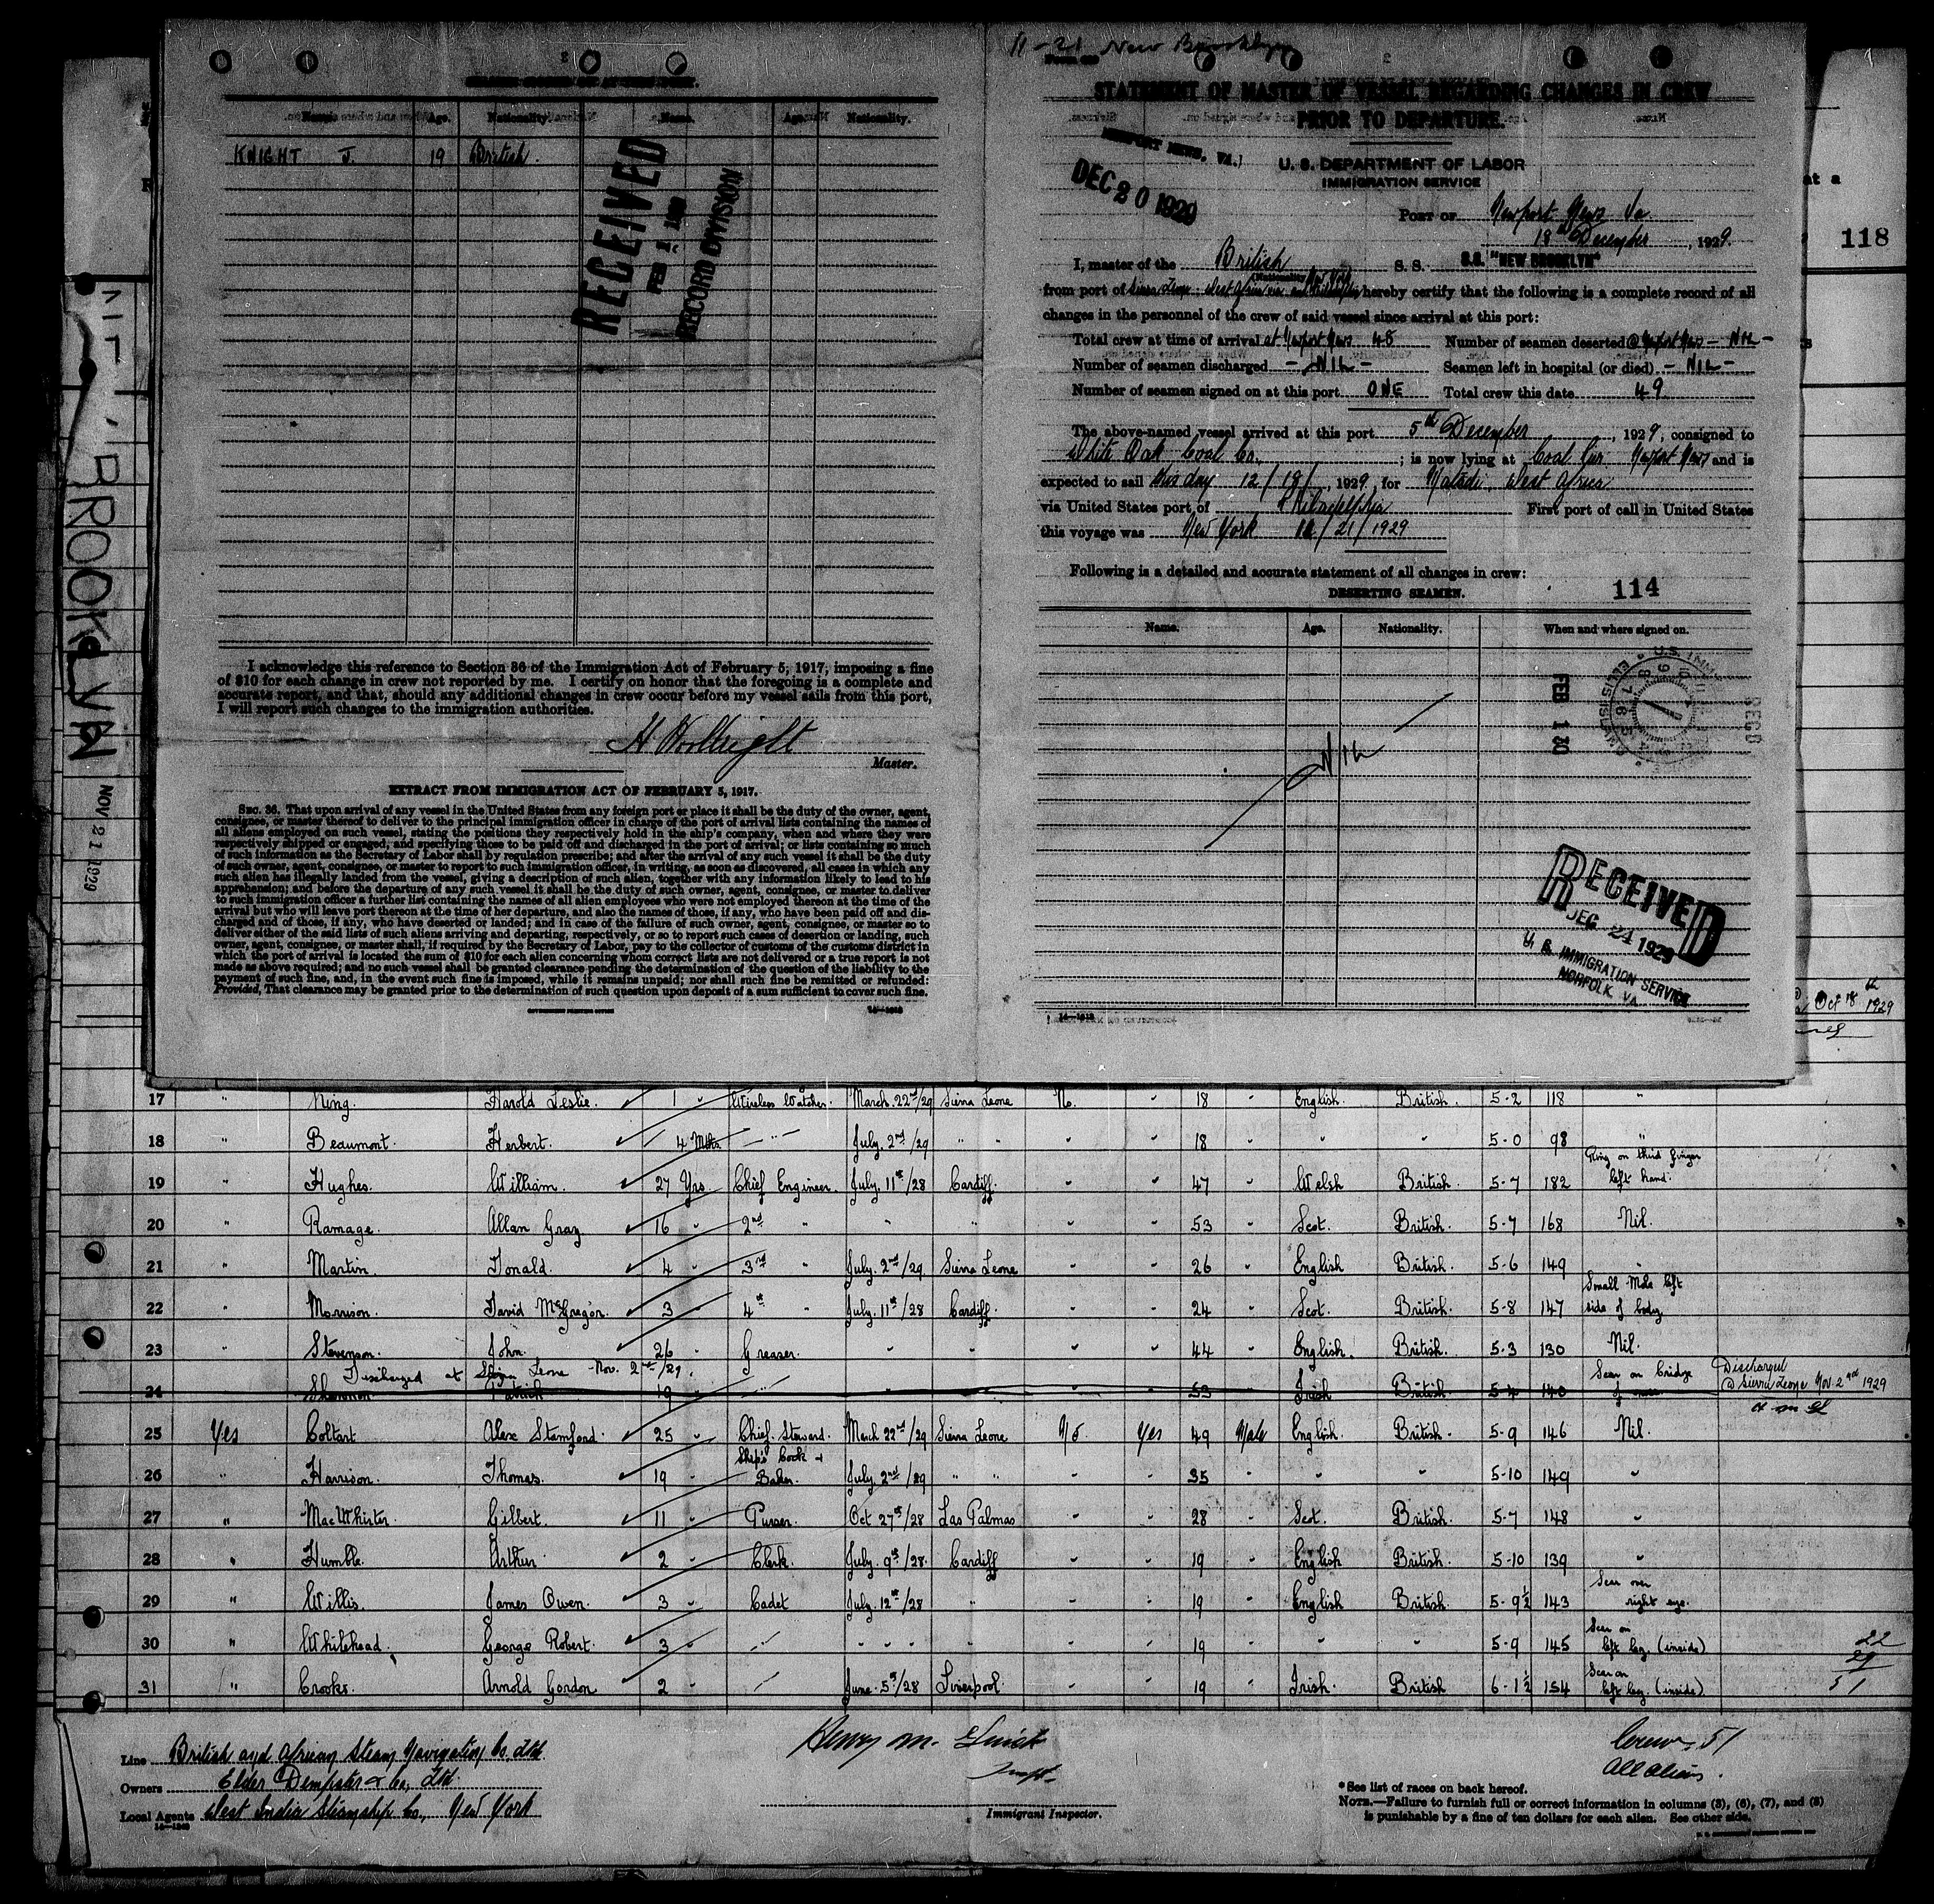 Name. Age. Nationality. Name. Age. Nationality.
KNIGHT J. 19 British.
RECEIVED
FEB 1
RECORD DIVISION
I acknowledge this reference to Section 36 of the Immigration Act of February 5, 1917, imposing a fine
of $10 for each change in crew not reported by me. I certify on honor that the foregoing is a complete and
accurate report, and that, should any additional changes in crew occur before my vessel sails from this port,
I will report such changes to the immigration authorities.
Master.
EXTRACT FROM IMMIGRATION ACT OF FEBRUARY 5, 1917.
SEC. 36. That upon arrival of any vessel in the United States from any foreign port or place it shall be the duty of the owner, agent,
consignee, or master thereof to deliver to the principal immigration officer in charge of the port of arrival lists containing the names of
all aliens employed on such vessel, stating the positions they respectively hold in the ship's company, when and where they were
respectively shipped or engaged, and specifying those to be paid off and discharged in the port of arrival; or lists containing so much
of such information as the Secretary of Labor shall by regulation prescribe; and after the arrival of any such vessel it shall be the duty
of such owner, agent, consignee, or master to report to such immigration officer, in writing, as soon as discovered, all cases in which any
such alien has illegally landed from the vessel, giving a description of such alien, together with any information likely to lead to his
apprehension; and before the departure of any such vessel it shall be the duty of such owner, agent, consignee, or master to deliver
to such immigration officer a further list containing the names of all alien employees who were not employed thereon at the time of the
arrival but who will leave port thereon at the time of her departure, and also the names of those, if any, who have been paid off and dis-
charged and of those, if any, who have deserted or landed; and in case of the failure of such owner, agent, consignee, or master so to
deliver either of the said lists of such aliens arriving and departing, respectively, or so to report such cases of desertion or landing, such
owner, agent, consignee, or master shall, if required by the Secretary of Labor, pay to the collector of customs of the customs district in
which the port of arrival is located the sum of $10 for each alien concerning whom correct lists are not delivered or a true report is not
made as above required; and no such vessel shall be granted clearance pending the determination of the question of the liability to the
payment of such fine, and, in the event such fine is imposed, while it remains unpaid; nor shall such fine be remitted or refunded:
Provided, That clearance may be granted prior to the determination of such question upon deposit of a sum sufficient to cover such fine.
11-21 New Brooklyn
STATEMENT OF MASTER OF VESSEL REGARDING CHANGES IN CREW
PRIOR TO DEPARTURE.
NEWPORT NEWS, VA.
DEC 20 1929
U. S. DEPARTMENT OF LABOR
IMMIGRATION SERVICE
PORT OF Newport News Va
18th December, 1929.
I, master of the British S. S. S.S. "NEW BROOKLYN"
(Nationality)
from port of Sierra Leone: West Africa via New York and Philadelphia hereby certify that the following is a complete record of all
changes in the personnel of the crew of said vessel since arrival at this port:
Total crew at time of arrival at Newport News 48 Number of seamen deserted @ Newport News - NIL -
Number of seamen discharged - NIL - Seamen left in hospital (or died) - NIL -
Number of seamen signed on at this port ONE Total crew this date 49
The above-named vessel arrived at this port 5th December, 1929, consigned to
White Oak Coal Co.; is now lying at Coal Pier Newport News and is
expected to sail this day 12/18/, 1929, for Matadi, West Africa
via United States port of Philadelphia First port of call in United States
this voyage was New York 11/21/1929
Following is a detailed and accurate statement of all changes in crew:
114
DESERTING SEAMEN.
Name. Age. Nationality. When and where signed on.
NIL
FEB 1 30
RECD
RECEIVED
DEC 24 1929
U. S. IMMIGRATION SERVICE
NORFOLK VA
118
at a
Oct 18th 1929
BROOKLYN
NOV 21 1929
17 " Ning. Harold Leslie. 1 " Wireless Watcher. March. 22nd/29 Sierra Leone No. " 18 " English. British. 5-2 118 "
18 " Beaumont. Herbert. 4 Mths. " July. 2nd/29 " " " " 18 " " " 5-0 98 "
19 " Hughes. William. 27 Yrs. Chief Engineer. July. 11th/28 Cardiff. " " 47 " Welsh British. 5-7 182 Ring on third finger left hand.
20 " Ramage. Allan Gray 16 " 2nd " " " " " 53 " Scot. British. 5-7 168 Nil.
21 " Martin. Donald. 4 " 3rd " July. 2nd/29. Sierra Leone " " 26 " English British. 5-6 149 "
22 " Morrison. David McGregor. 3 " 4th " July. 11th/28 Cardiff. " " 24 " Scot. British. 5-8 147 Small Mole left side of body
23 " Stevenson. John. 26 " Greaser. " " " " 44 " English. British. 5-3 130 Nil.
Discharged at Sierra Leone Nov. 2nd/29.
24 " Shannon Patrick 19 " " " " " 53 " Irish British. 5-4 140 Scar on bridge of nose Discharged @ Sierra Leone Nov. 2nd 1929
25 Yes Coltart Alex Stamford. 25 " Chief. Steward. March 22nd/29 Sierra Leone No. Yes 49 Male English. British. 5-9 146 Nil.
26 " Harrison. Thomas. 19 " Ship's Cook & Baker. July. 2nd/29 " " " " 35 " " " 5-10 149 "
27 " MacWhirter. Gilbert. 11 " Purser. Oct 27th/28 Las Palmas " " 28 " Scot. British. 5-7 148 "
28 " Humble. Arthur. 2 " Clerk. July. 9th/28. Cardiff " " 19 " English British. 5-10 139 "
29 " Willis. James Owen. 3 " Cadet July. 12th/28 " " " 19 " English British. 5-9½ 143 Scar over right eye.
30 " Whitehead. George Robert. 3 " " " " " " " 19 " " " 5-9 145 Scar on left leg. (inside)
31 " Crooks. Arnold Gordon 2 " " June. 5th/28 Liverpool. " " 19 " Irish. British 6-1½ 154 Scar on left leg. (inside)
22
29
51
Line British and African Steam Navigation Co. Ltd.
Owners Elder Dempster & Co, Ltd.
Local Agents West India Steamship Co., New York
Immigrant Inspector.
Crew, 51
All Aliens.
*See list of races on back hereof.
NOTE.—Failure to furnish full or correct information in columns (3), (6), (7), and (8)
is punishable by a fine of ten dollars for each alien. See other side.